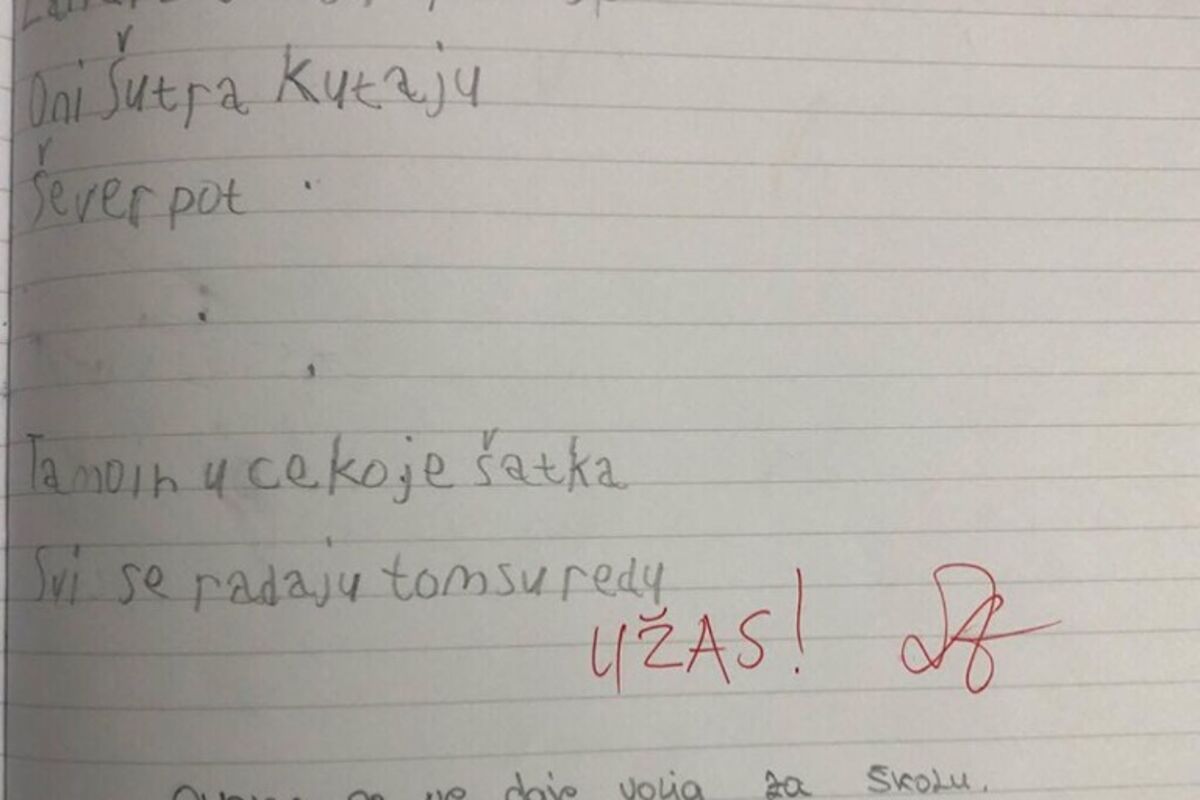 Oni šutra kutaju
šever pot .
Tamoin u ce koje šatka
Svi se radaju tomsu redu
UŽAS!
se ne daje volja za školu.